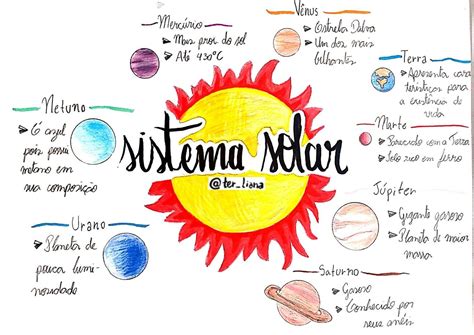 sistema solar
@ter_liana
Mercúrio
Mais prox. do sol
Até 430°C
Vênus
Estrela Dalva
Um dos mais
brilhantes
Terra
Apresenta cara
terísticas para
a existência de
vida
Marte
Parecido com a Terra
Solo rico em ferro
Júpiter
Gigante gasoso
Planeta de maior
massa
Saturno
Gasoso
Conhecido por
seus anéis
Urano
Planeta de
pouca lumi-
nosidade
Netuno
É azul
pois possui
metano em
sua composição